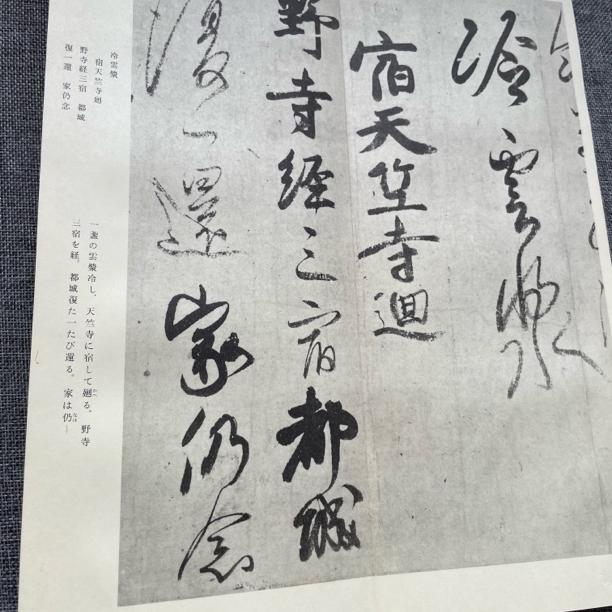 冷雲漿
宿天竺寺迴
野寺經三宿都城
復一還家仍念
冷雲漿
宿天竺寺廻
野寺経三宿 都城
復一還 家仍念
一盞の雲漿冷し。天竺寺に宿して廻る。 野寺
三宿を経。都城復た一たび還る。 家は仍